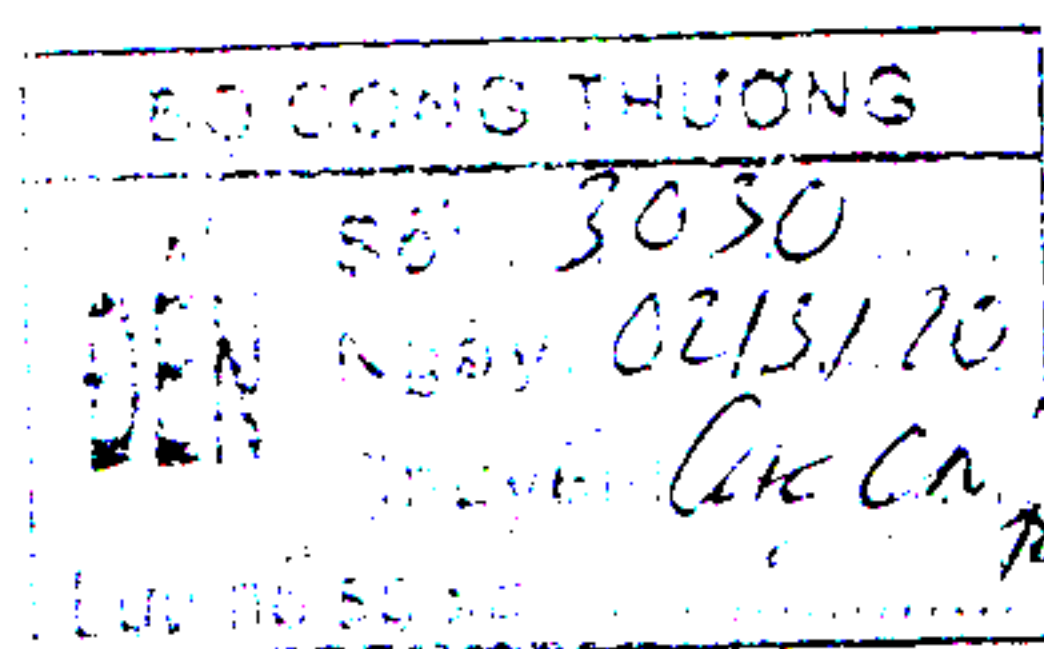 BỘ CÔNG THƯƠNG
ĐẾN
Số 3030
Ngày 02/3/20
Chuyển Cục CN
Lưu hồ sơ số